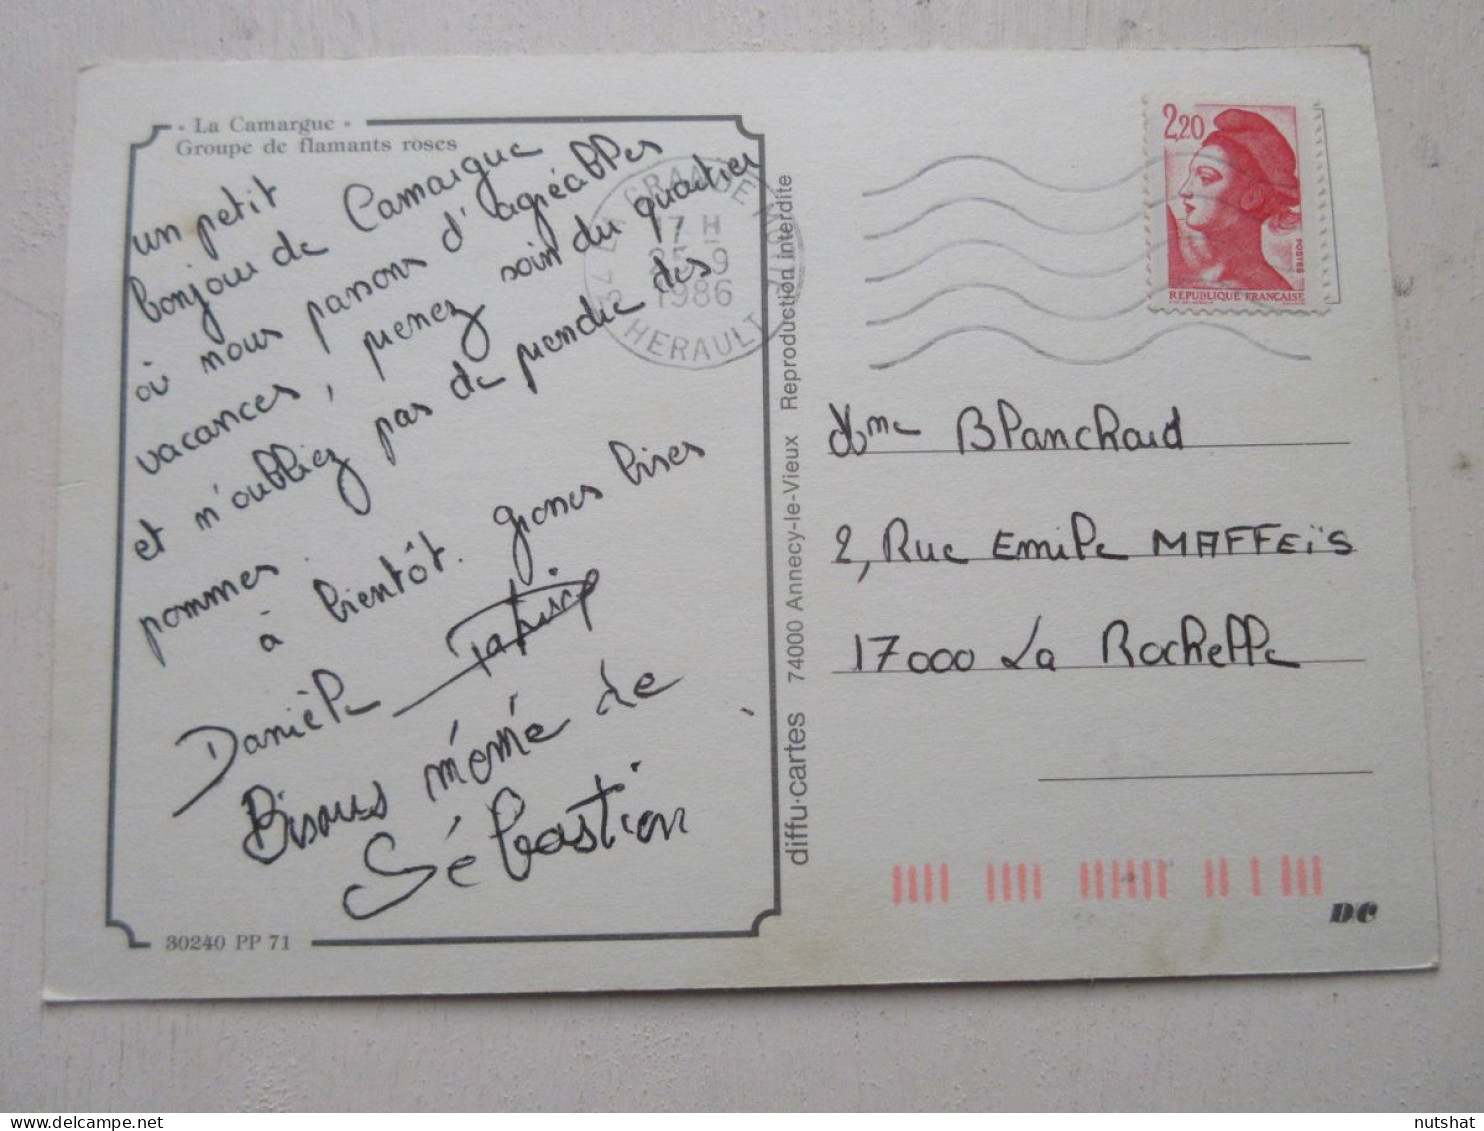 « La Camargue »
Groupe de flamants roses
un petit
bonjour de Camargue
où nous passons d'agréables
vacances, prenez soin du quartier
et n'oubliez pas de prendre des
pommes.
à bientôt. Grosses bises
Danièle Patrice
Bisous mémé de
Sébastien
30240 PP 71
LA GRANDE MOTTE
17 H
25-9
1986
HERAULT
diffu·cartes 74000 Annecy-le-Vieux Reproduction interdite
2,20
POSTES
REPUBLIQUE FRANÇAISE
Mme Blanchard
2, Rue Emile MAFFEïS
17000 La Rochelle
DC
nutshat